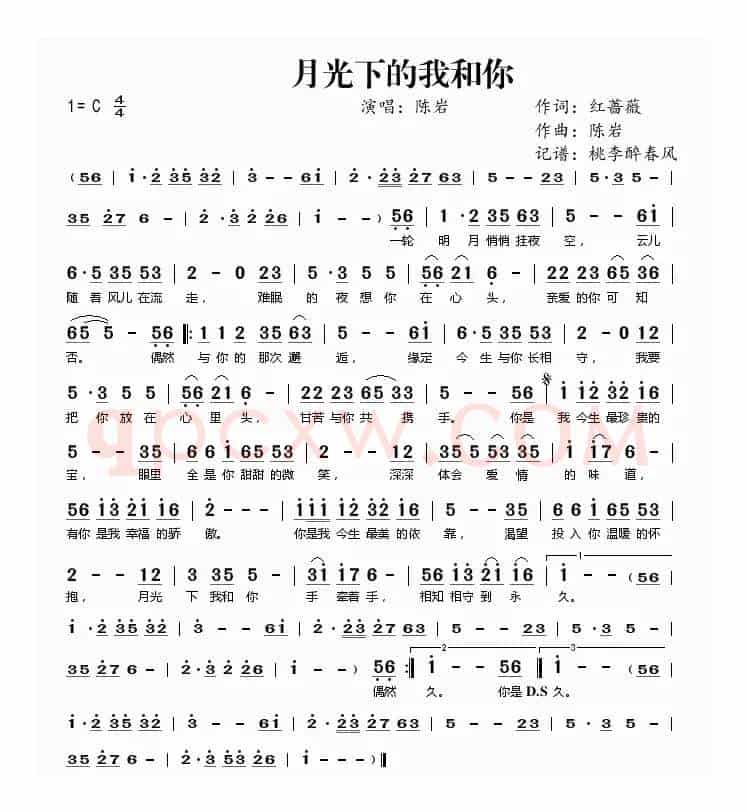 月光下的我和你
1= C 4/4 演唱：陈岩 作词：红蔷薇
作曲：陈岩
记谱：桃李醉春风
(56 | 1·2 35 32 | 3 - - 61 | 2·23 27 63 | 5 - - 23 | 5·3 5 -
35 27 6 - | 2·3 2 26 | 1 - -) 56 | 1·2 35 63 | 5 - - 61 |
一轮 明 月 悄悄 挂夜 空， 云儿
6·5 35 53 | 2 - 0 23 | 5·3 5 2 | 56 21 6 - | 22 23 65 36 |
随 着 风儿 在流 走， 难眠 的 夜 想 你 在 心 头， 亲爱 的你 可 知
65 5 - 56 |: 1 1 2 35 63 | 5 - - 61 | 6·5 35 53 | 2 - 0 12 |
否。 偶然 与 你 的 那次 邂 逅， 缘定 今 生 与你 长相 守， 我要
5·3 5 5 | 56 21 6 - | 22 23 65 33 | 5 - - 56 | 1 12 32 16 |
把 你 放 在 心 里 头， 甘苦 与你 共 携 手。 你是 我 今生 最珍 贵的
5 - - 35 | 6 61 65 53 | 2 - - 12 | 35 53 35 | 1 17 6 - |
宝， 眼里 全 是你 甜甜 的微 笑， 深深 体会 爱 情 的 味 道，
56 13 21 16 | 2 - - - | 111 11 33 16 | 5 - - 35 | 6 61 65 53 |
有你 是我 幸福 的骄 傲。 你是我 今生 最美 的依 靠， 渴望 投 入你 温暖 的怀
2 - - 12 | 3 35 5 - | 31 17 6 - | 56 13 21 16 | 1 - - (56 |
抱， 月光 下 我和 你 手 牵着 手， 相知 相守 到 永 久。
1·2 35 32 | 3 - - 61 | 2·23 27 63 | 5 - - 23 | 5·3 5 - |
35 27 6 - | 2·3 2 26 | 1 - -) 56 :| 1 - - 56 | 1 - - - |
偶然 久。 你是 D.S 久。
1·2 35 32 | 3 - - 61 | 2·23 27 63 | 5 - - 23 | 5·3 5 - |
35 27 6 - | 2·3 53 26 | 1 - - -) ||
qpcxw.com